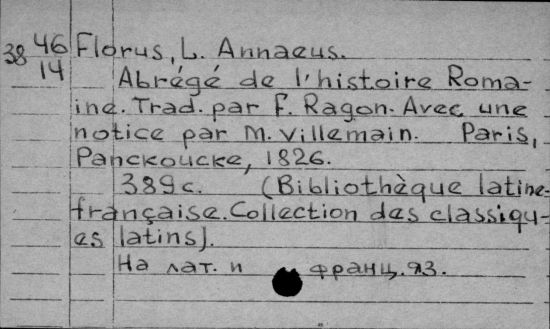 38 46 Florus, L. Annaeus.
14 Abrégé de l'histoire Roma-
ine. Trad. par F. Ragon. Avec une
notice par M. Villemain. Paris,
Panckoucke, 1826.
389с. (Bibliothèque latine-
française. Collection des classiqu-
es latins).
На лат. и франц. яз.